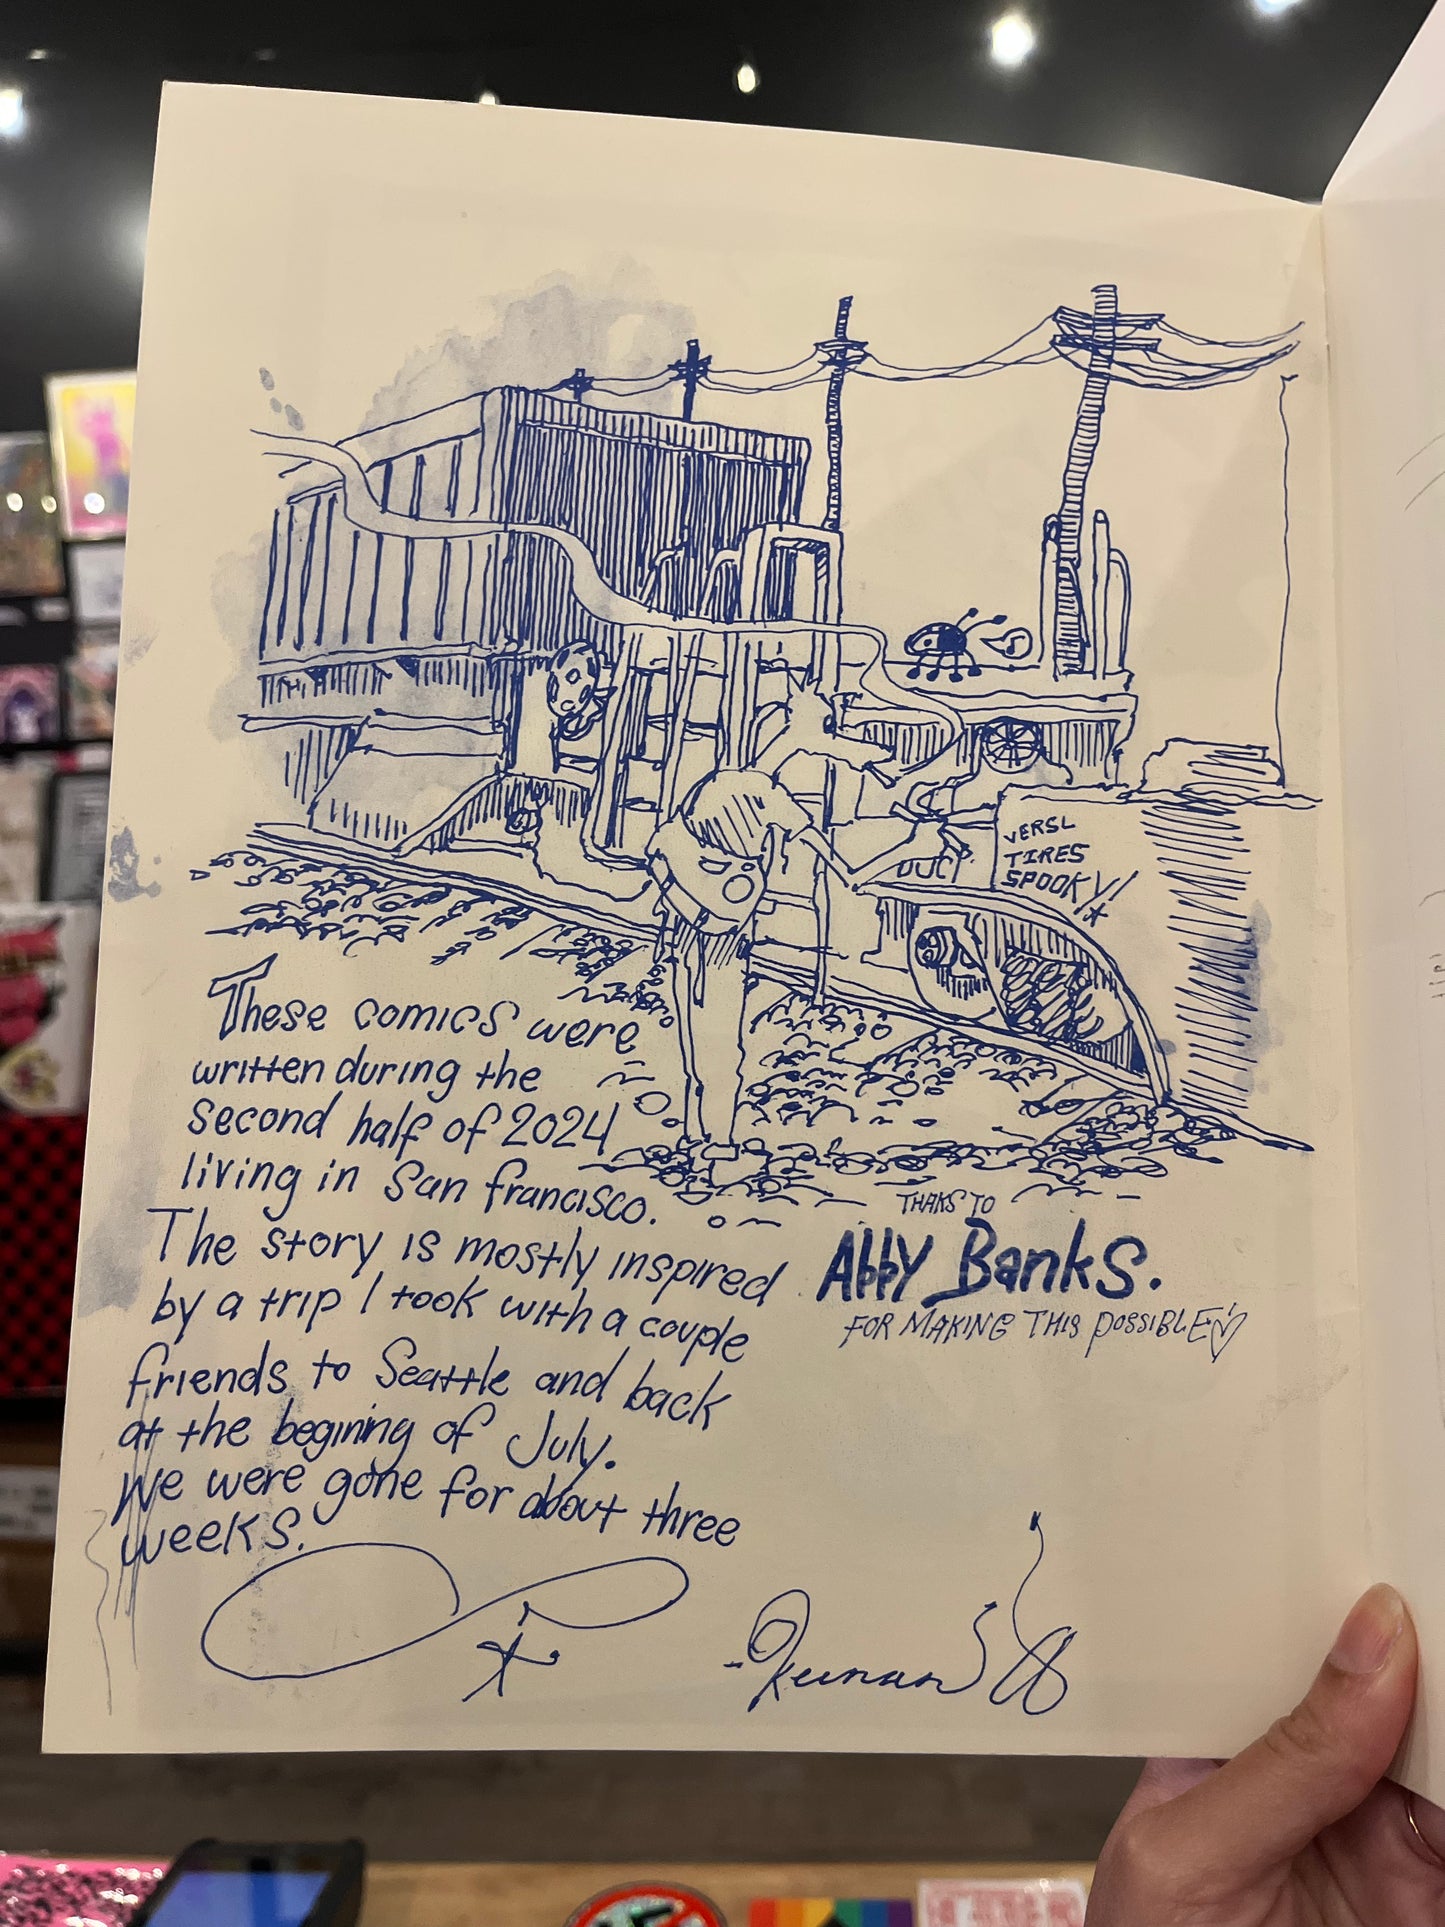 VERSL
TIRES
SPOOKY!
These comics were
written during the
second half of 2024
living in San francisco.
The story is mostly inspired
by a trip I took with a couple
friends to Seattle and back
at the begining of July.
We were gone for about three
weeks.
THAKS TO
Abby Banks.
FOR MAKING THIS POSSIBLE